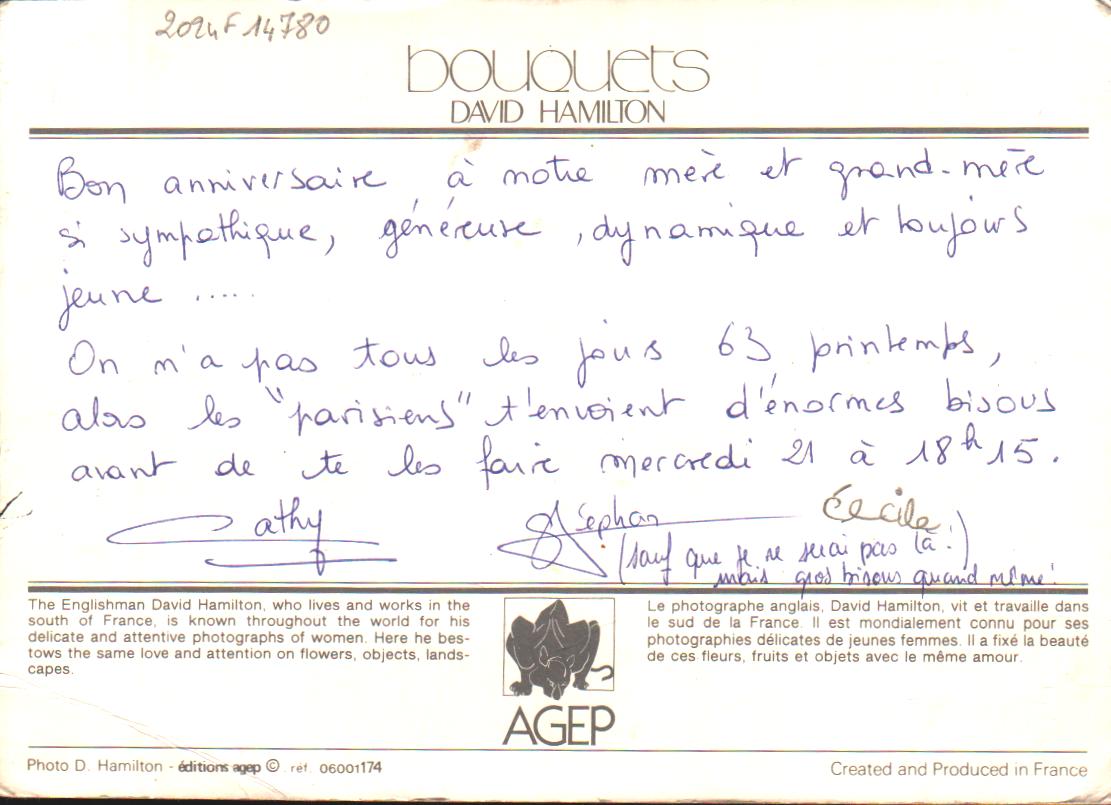 2024F14780
bouquets
DAVID HAMILTON
Bon anniversaire à notre mère et grand-mère
si sympathique, généreuse, dynamique et toujours
jeune .....
On n'a pas tous les jours 63 printemps,
alors les "parisiens" t'envoient d'énormes bisous
avant de te les faire mercredi 21 à 18h15.
Cathy Stéphan Cécile
(sauf que je ne serai pas là !)
mais gros bisous quand même !
The Englishman David Hamilton, who lives and works in the
south of France, is known throughout the world for his
delicate and attentive photographs of women. Here he bes-
tows the same love and attention on flowers, objects, lands-
capes.
Le photographe anglais, David Hamilton, vit et travaille dans
le sud de la France. Il est mondialement connu pour ses
photographies délicates de jeunes femmes. Il a fixé la beauté
de ces fleurs, fruits et objets avec le même amour.
AGEP
Photo D. Hamilton - éditions agep © . réf. 06001174
Created and Produced in France